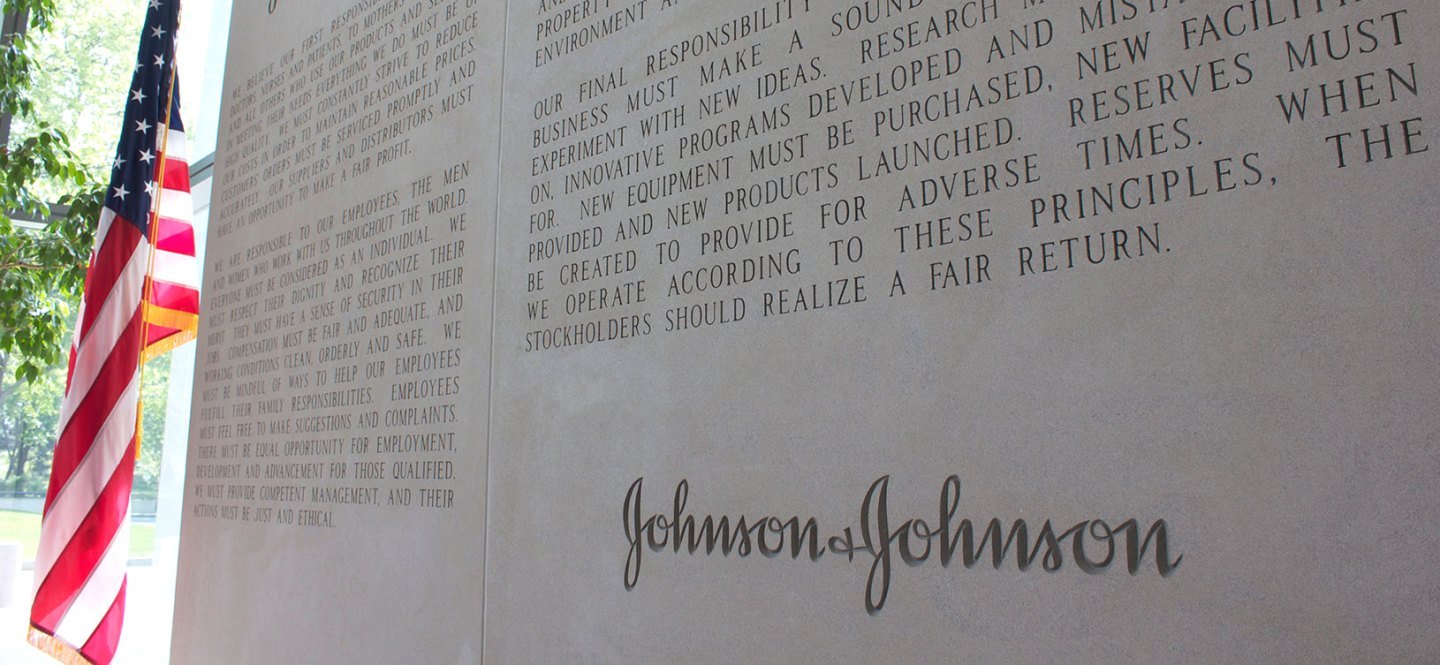 WE BELIEVE OUR FIRST RESPONSIBILITY
DOCTORS, NURSES AND PATIENTS, TO MOTHERS
AND ALL OTHERS WHO USE OUR PRODUCTS AND
IN MEETING THEIR NEEDS EVERYTHING WE DO MUST BE OF
HIGH QUALITY. WE MUST CONSTANTLY STRIVE TO REDUCE
OUR COSTS IN ORDER TO MAINTAIN REASONABLE PRICES.
CUSTOMERS' ORDERS MUST BE SERVICED PROMPTLY AND
ACCURATELY. OUR SUPPLIERS AND DISTRIBUTORS MUST
HAVE AN OPPORTUNITY TO MAKE A FAIR PROFIT.
WE ARE RESPONSIBLE TO OUR EMPLOYEES, THE MEN
AND WOMEN WHO WORK WITH US THROUGHOUT THE WORLD.
EVERYONE MUST BE CONSIDERED AS AN INDIVIDUAL. WE
MUST RESPECT THEIR DIGNITY AND RECOGNIZE THEIR
MERIT. THEY MUST HAVE A SENSE OF SECURITY IN THEIR
JOBS. COMPENSATION MUST BE FAIR AND ADEQUATE, AND
WORKING CONDITIONS CLEAN, ORDERLY AND SAFE. WE
MUST BE MINDFUL OF WAYS TO HELP OUR EMPLOYEES
FULFILL THEIR FAMILY RESPONSIBILITIES. EMPLOYEES
MUST FEEL FREE TO MAKE SUGGESTIONS AND COMPLAINTS.
THERE MUST BE EQUAL OPPORTUNITY FOR EMPLOYMENT,
DEVELOPMENT AND ADVANCEMENT FOR THOSE QUALIFIED.
WE MUST PROVIDE COMPETENT MANAGEMENT, AND THEIR
ACTIONS MUST BE JUST AND ETHICAL.
PROPERTY
ENVIRONMENT
OUR FINAL RESPONSIBILITY
BUSINESS MUST MAKE A SOUND
EXPERIMENT WITH NEW IDEAS. RESEARCH
ON, INNOVATIVE PROGRAMS DEVELOPED AND
FOR. NEW EQUIPMENT MUST BE PURCHASED, NEW
PROVIDED AND NEW PRODUCTS LAUNCHED. RESERVES MUST
BE CREATED TO PROVIDE FOR ADVERSE TIMES. WHEN
WE OPERATE ACCORDING TO THESE PRINCIPLES, THE
STOCKHOLDERS SHOULD REALIZE A FAIR RETURN.
Johnson & Johnson